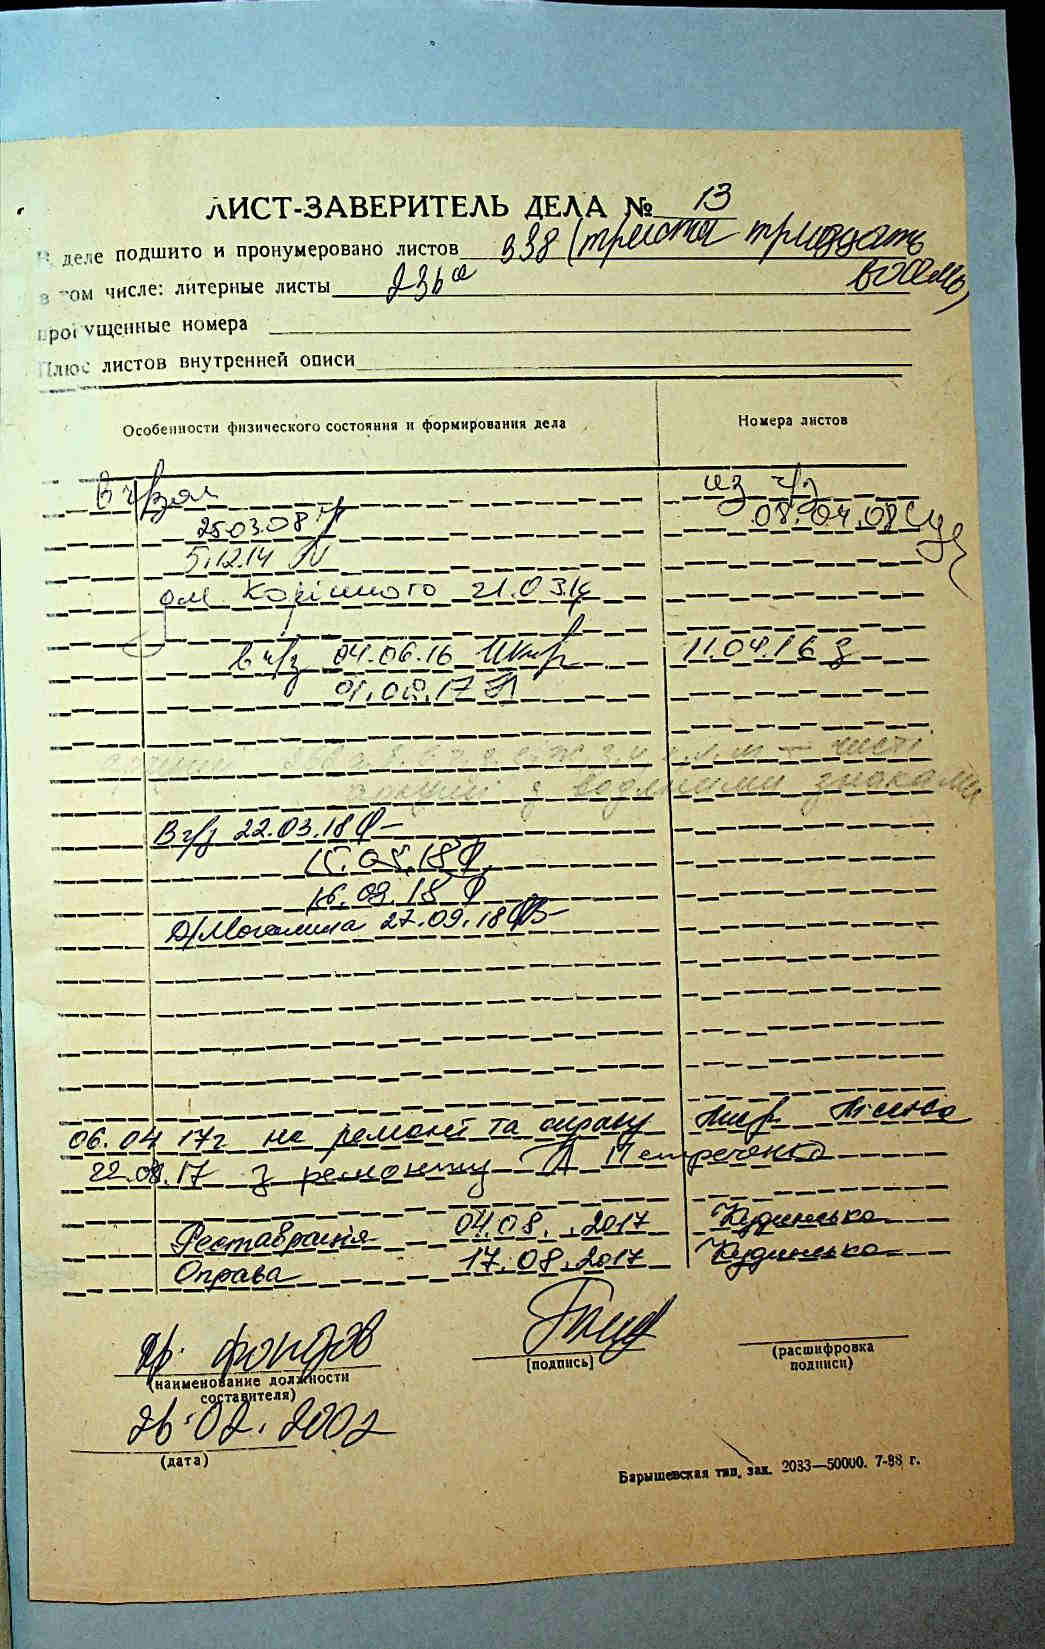 ЛИСТ-ЗАВЕРИТЕЛЬ ДЕЛА № 13
В деле подшито и пронумеровано листов 338 (триста тридцать
восемь)
в том числе: литерные листы 236а
пропущенные номера
Плюс листов внутренней описи
Особенности физического состояния и формирования дела
Номера листов
В ч/зал из ч/з
25.03.08 08.04.08
5.12.14
21.03.16
в ч/з 04.06.16 11.04.16
01.08.17
чисті
аркуші з водяними знаками
В ч/з 22.03.18
15.05.18
16.08.18
27.09.18
06.04 17г на ремонт та оправу
22.08.17 з ремонту Петреченко
Реставрація 04.08.2017 Кудинько
Оправа 17.08.2017 Кудинько
хр. фондов
(наименование должности
составителя)
(подпись)
(расшифровка
подписи)
26.02.2002
(дата)
Барышевская тип. зак. 2033—50000. 7-88 г.